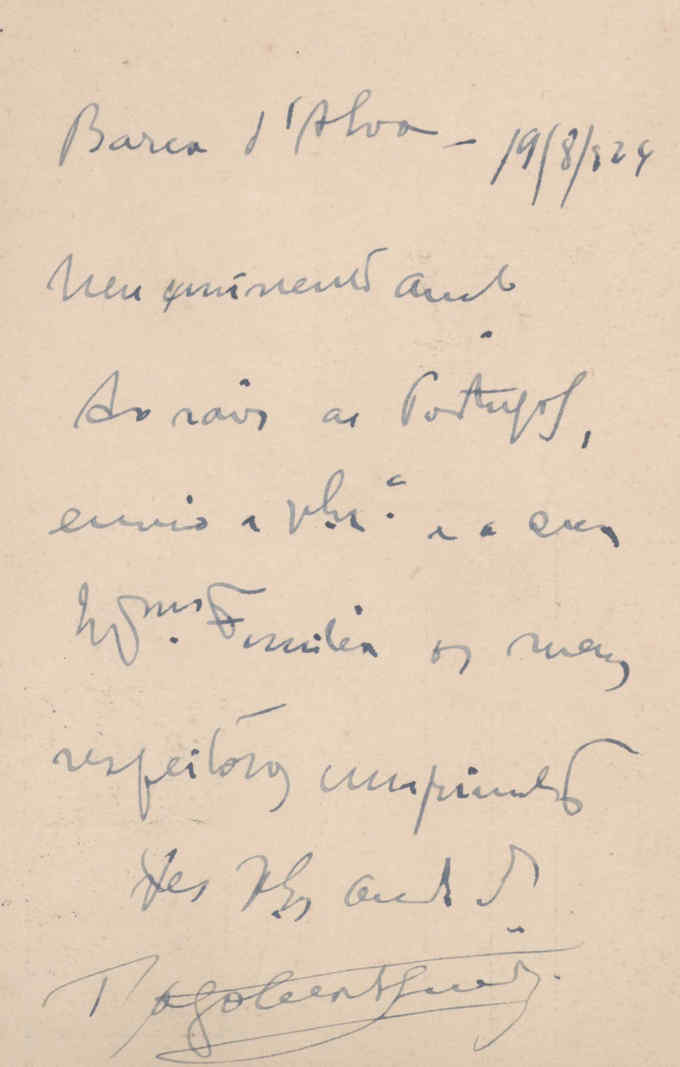 Barca d'Alva - 19/8/924
Meu eminente amº
Ao sair de Portugal,
envio a V. Exª e a sua
Exma. Familia os meus
respeitosos cumprimentos
De V. Ex. amº